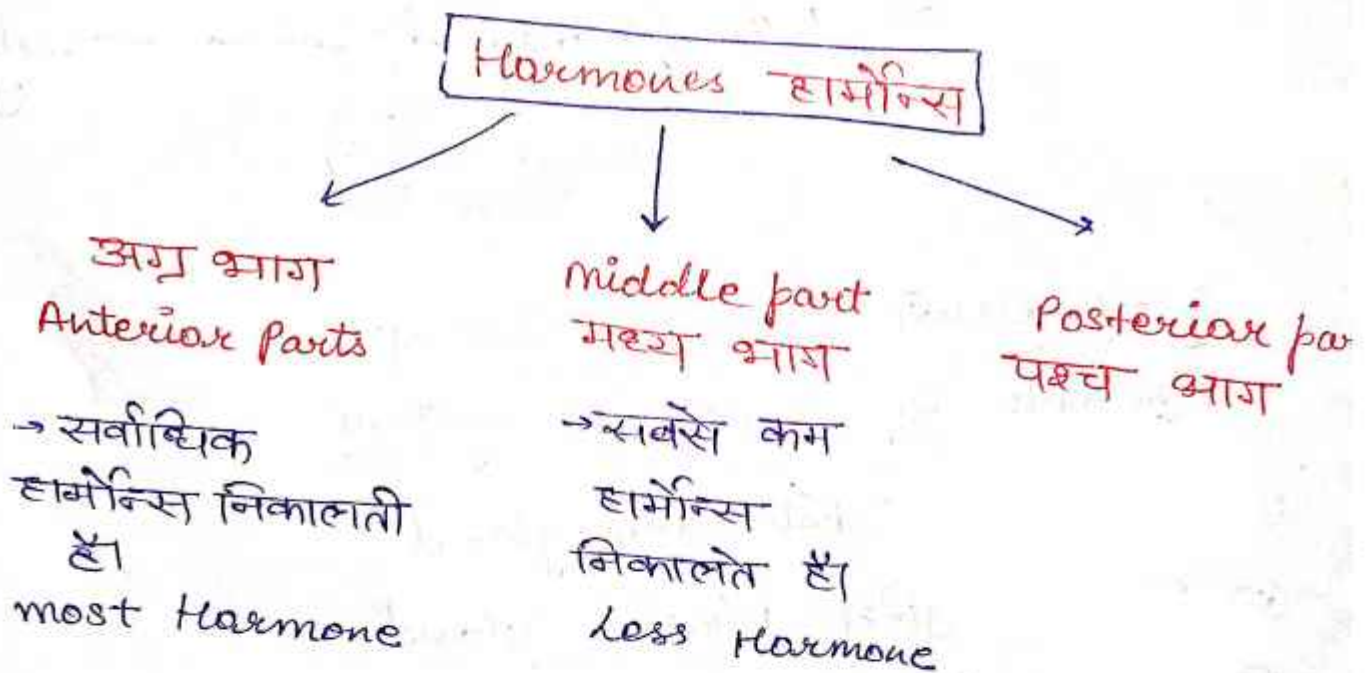 Harmones हार्मोन्स
अग्र भाग
Anterior Parts
→ सर्वाधिक
हार्मोन्स निकालती
है।
most Harmone
middle part
मध्य भाग
→ सबसे कम
हार्मोन्स
निकालते है।
Less Harmone
Posteriar par
पश्च भाग